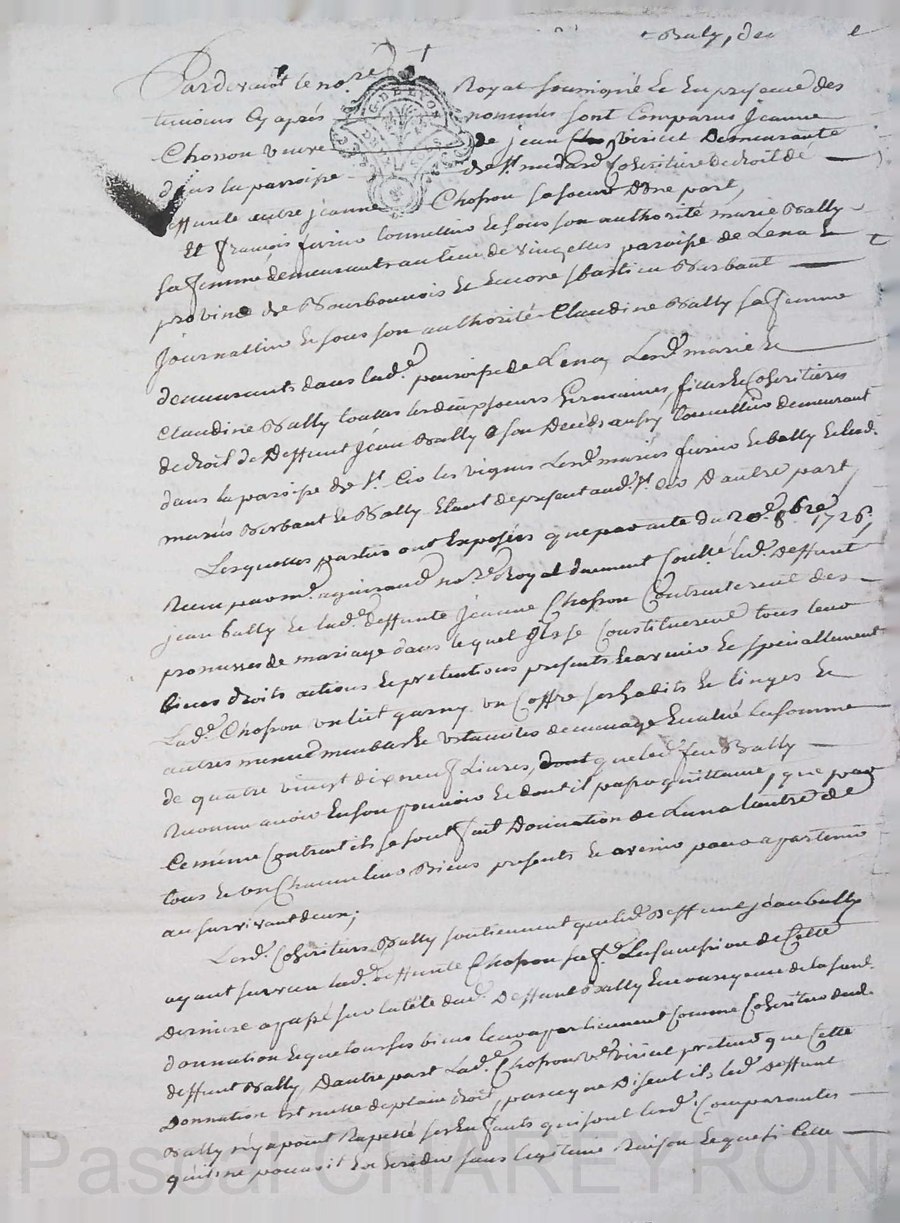 Bally, de
Pardevant le no.re Royal soussigné Et En presence des
temoins Cy aprés nommés sont Comparus Jeanne
Chosson veuve de jean Viricel Demeurante
dans la paroisse de St. medard Coheritiere de droit de
deffunte autre jeanne Chosson sa soeur D'une part,
Et françois
Et sous son authorité marie Bally
sa femme demeurants au lieu de paroisse de Lena
province de Bourbonnois Et Encore Barbaut
Journallier Et sous son authorité Claudine Bally sa femme
demeurants dans lad.e paroisse de Lena, Lesd. marie Et
Claudine Bally toutes les deux soeurs Germaines, filles Et Coheritieres
de droit de Deffunt Jean Bally a son Decés aussy demeurant
dans la paroisse de St. les vignes Lesd. mariés Et Bally Et lesd.
mariés Barbaut Et Bally Etant de present aud. St. D'autre part,
Lesquelles parties ont Exposées que par acte du 20.e 8bre 1726,
Recu par me. no.re Royal duement Controllé led. Deffunt
jean bally Et lad.e deffunte Jeanne Chosson Contracterent des
promesses de mariage dans lequel Ils se Constituerent tous leurs
biens droits actions Et pretentions presents Et avenir Et speciallement
Lad.e Chosson un lict garny un Coffre ses habits Et linges Et
autres menus meubles Et Ustancilles de menage La somme
de quatre vingt dix neuf Livres, dont que led. feu Bally
Reconnu avoir En son pouvoir Et dont il passa quittance, que par
Ce même Contrait ils se sont fait Donnation de L'un a l'autre de
tous Et un Chacun leurs Biens presents Et avenir pour apartenir
au survivant d'eux;
Lesd. Coheritiers Bally soutiennent que led. Deffunt jean bally
ayant survecu lad.e deffunte Chosson sa f.e La succession de Cette
Derniere a passé sur la tête dud. Deffunt Bally En consequence de la susd.
donnation Et que tous ses biens leur apartiennent Comme Coheritiers dud.
deffunt Bally, D'autre part Lad.e Chosson v.e Viricel pretend que Cette
Donnation Est nulle de plain droit, parce que Disent ils led. Deffunt
Bally n'y a point Rapellé ses Enfants qui sont lesd. Comparantes
qu'il ne pouvoit Exhereder sans legitime Raison Et que si Cette
Pascal CHAREYRON